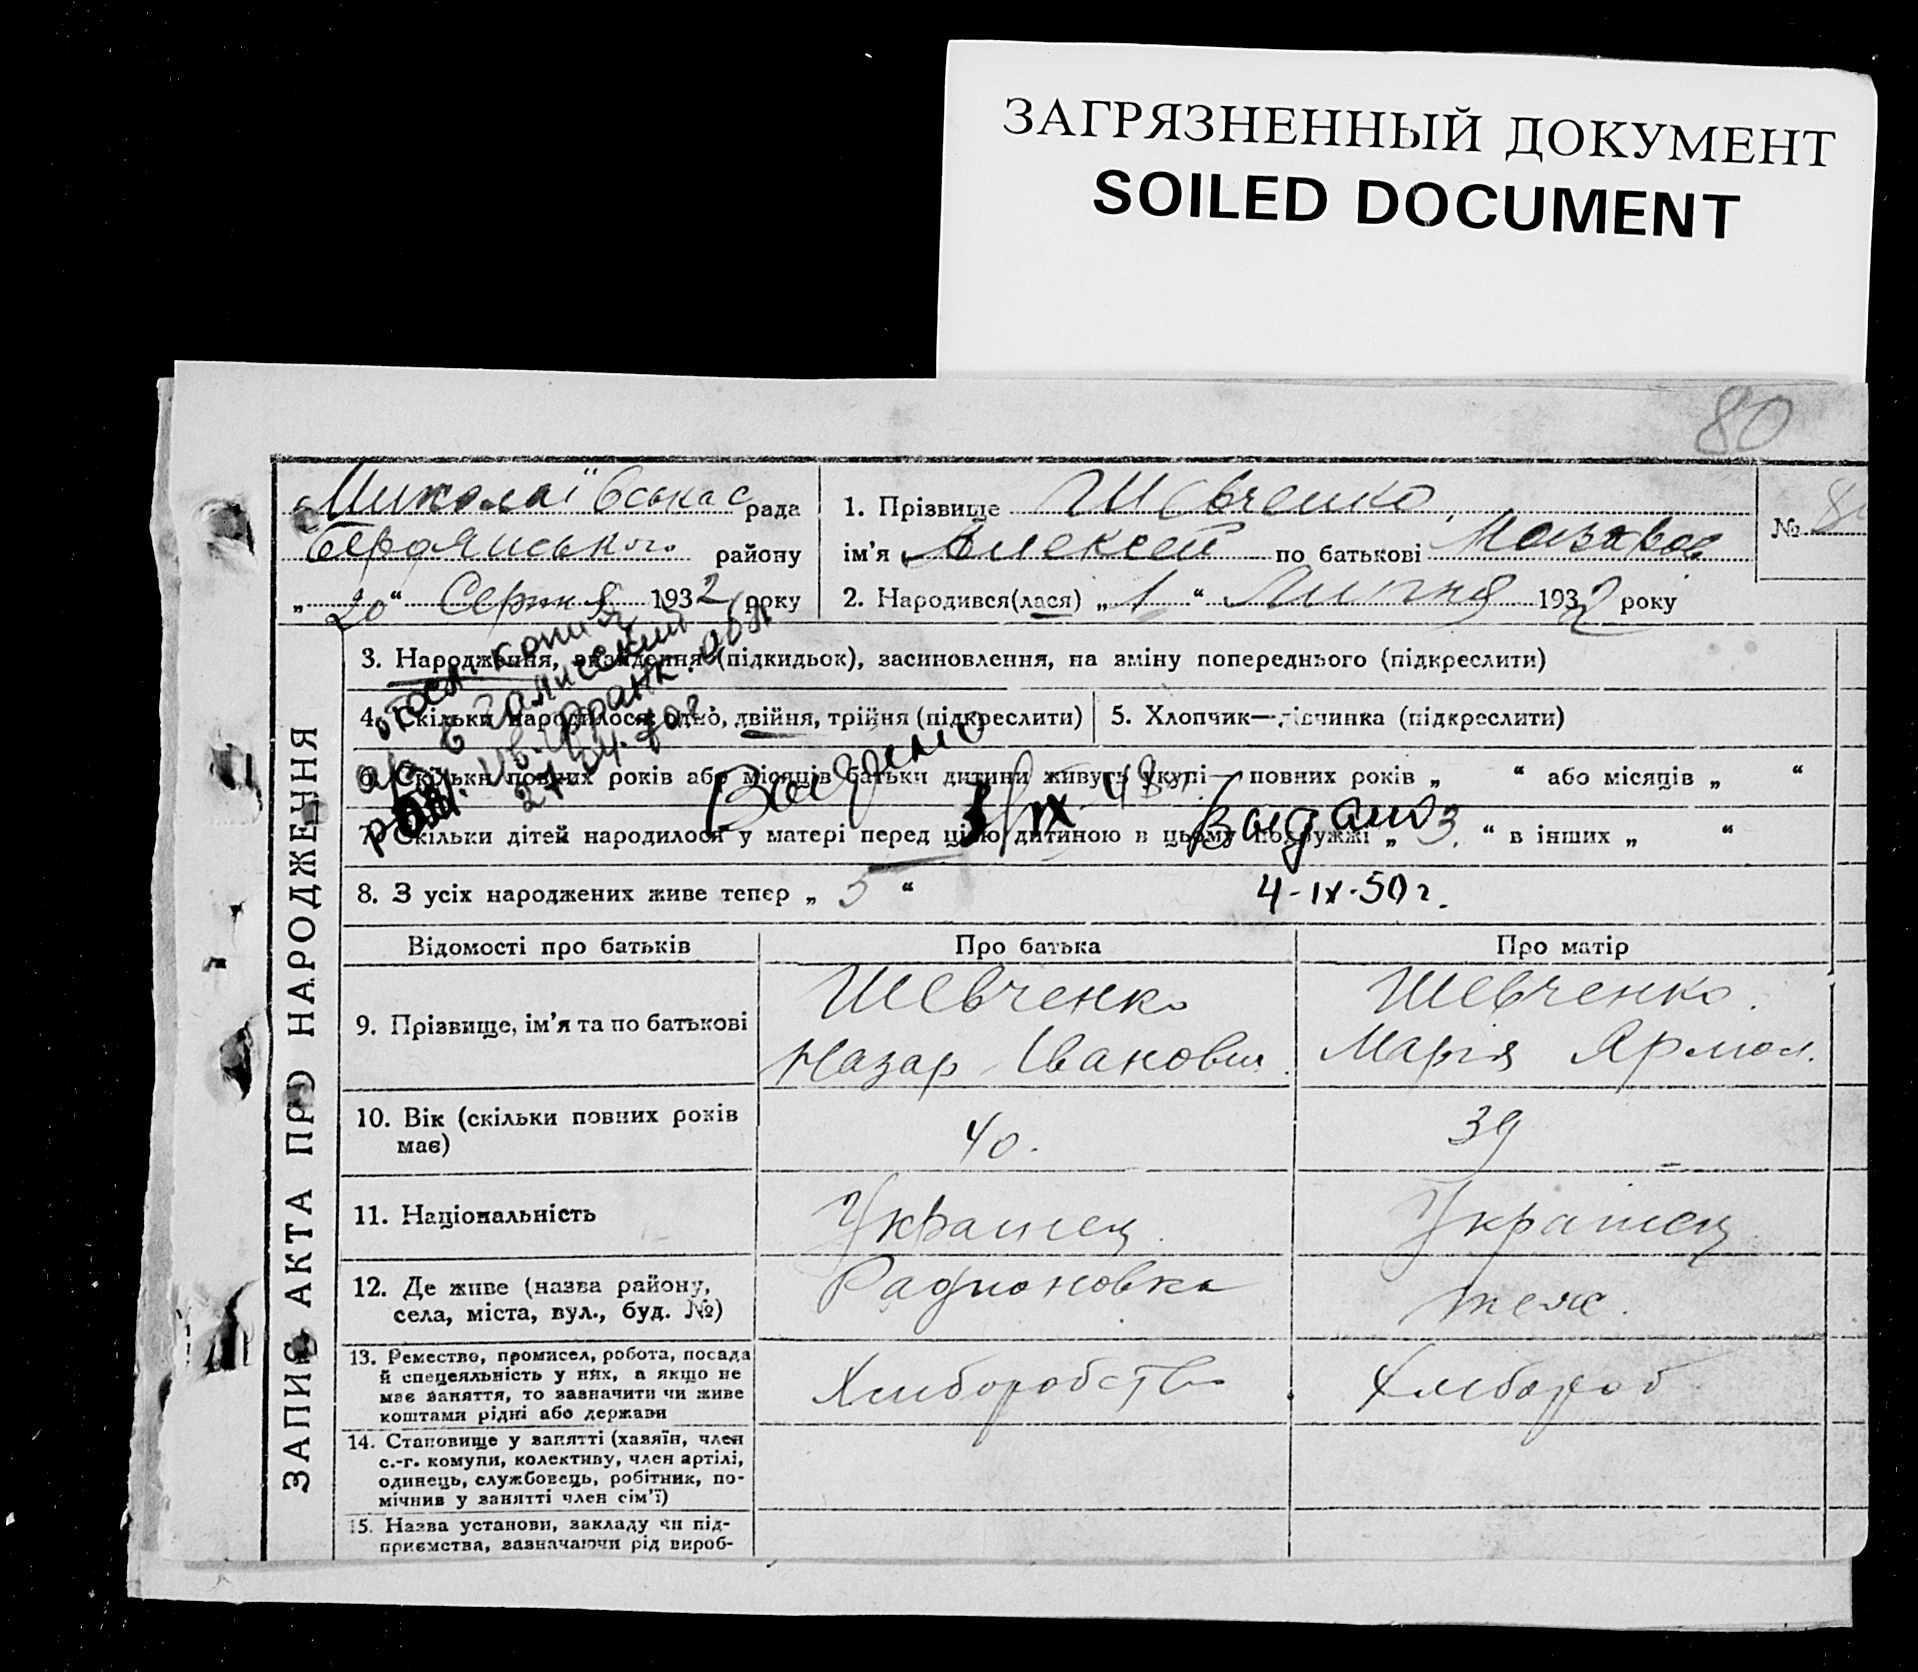 ЗАГРЯЗНЕННЫЙ ДОКУМЕНТ
SOILED DOCUMENT
80
Миколаївська с рада
Бердянського району
„20“ Серпня 1932 року
1. Прізвище Шевченко
ім'я Алексей по батькові
2. Народився(лася) „1“ Липня 1932 року
№ 80
ЗАПИС АКТА ПРО НАРОДЖЕННЯ
3. Народження, знайдення (підкидьок), засиновлення, на зміну попереднього (підкреслити)
4. Скільки народилося: одно, двійня, трійня (підкреслити)
5. Хлопчик—дівчинка (підкреслити)
6. Скільки повних років або місяців батьки дитини живуть укупі— повних років „ “ або місяців „ “
7. Скільки дітей народилося у матері перед цією дитиною в цьому подружжі „ 3. “ в інших „ “
8. З усіх народжених живе тепер „ 5 “
копия
4-IX-50 г.
Відомості про батьків
Про батька
Про матір
9. Прізвище, ім'я та по батькові
Шевченко
Назар Іванович
Шевченко.
Марія Ярмол.
10. Вік (скільки повних років
має)
40.
39
11. Національність
Украинец
Украинец
12. Де живе (назва району,
села, міста, вул., буд. №)
Радионовка
теж.
13. Ремество, промисел, робота, посада
й спецеяльність у них, а якщо не
має заняття, то зазначити чи живе
коштами рідні або держави
Хлиборобство
Хлибороб
14. Становище у занятті (хазяїн, член
с.-г. комуни, колективу, член артілі,
одинець, службовець, робітник, по-
мічник у занятті член сім'ї)
15. Назва установи, закладу чи під-
приємства, зазначаючи рід вироб-